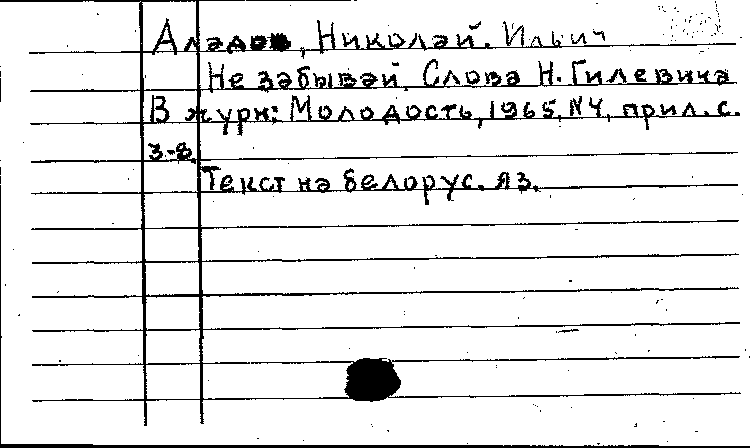 Аладов, Николай. Ильич
Не забывай. Слова Н. Гилевича
В журн: Молодость, 1965, N4, прил. с.
3-8.
Текст на белорус. яз.